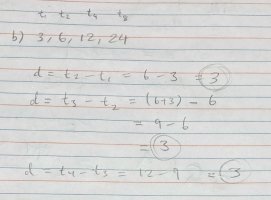 t₁ t₂ t₄ t₈
b) 3, 6, 12, 24
d = t₂ - t₁ = 6 - 3 = 3
d = t₃ - t₂ = (6+3) - 6
= 9 - 6
= 3
d = t₄ - t₃ = 12 - 9 = 3